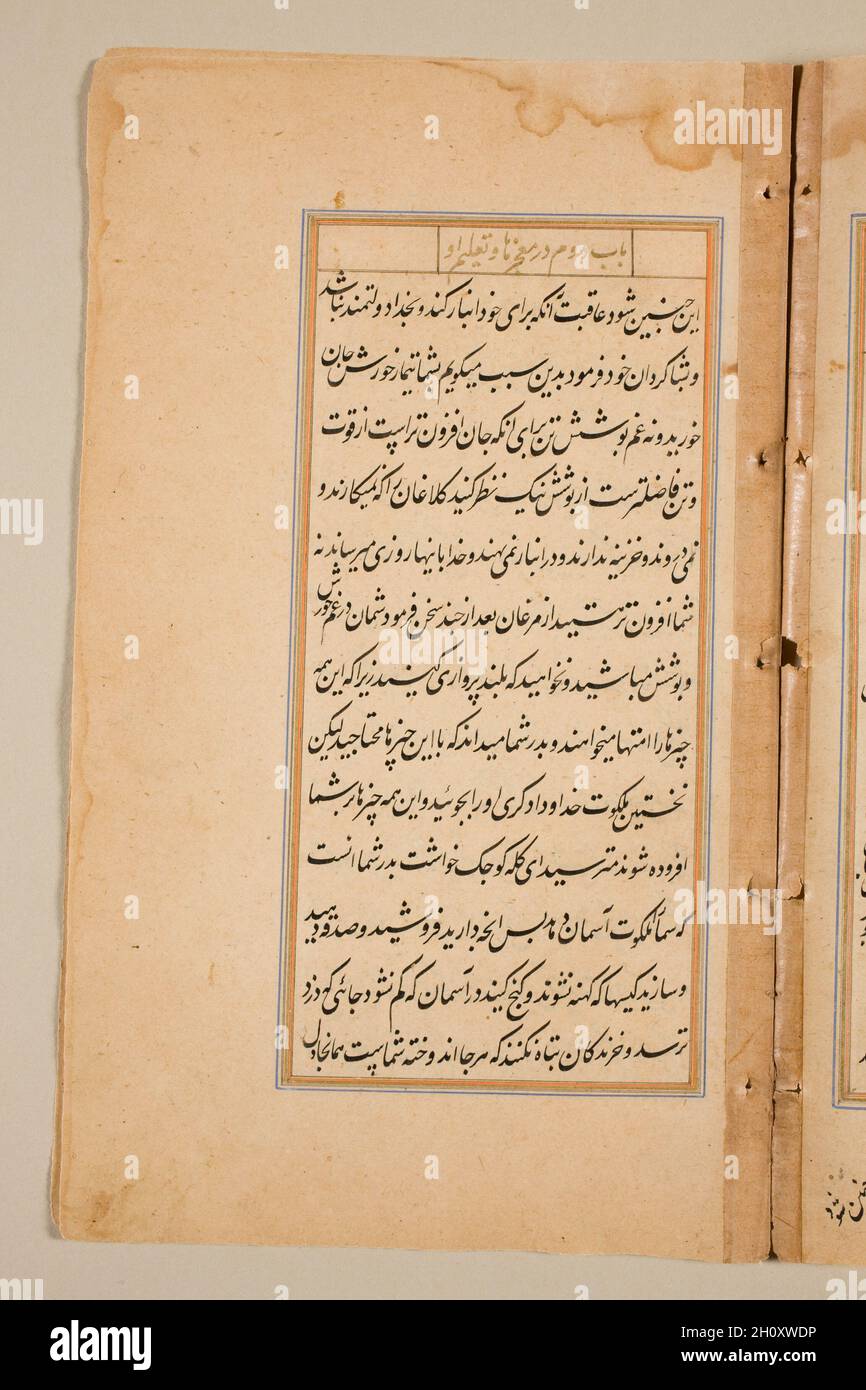 باب دوم در معجزها و تعلیم او
این چنین شود عاقبت آنکه برای خود انبار کند و بخدا دولتمند نباشد
و بشاکردان خود فرمود بدین سبب میکویم بشما تیمار خورش جان
خورید و نه غم پوشش تن برای آنکه جان افزون تر است از قوت
و تن فاضلترست از پوشش نیک نظر کنید کلاغان را که نمیکارند و
نمی دروند و خزینه ندارند و در انبار نمی نهند و خدا باینها روزی میرساند نه
شما افزون تر هستید از مرغان بعد از چند سخن فرمود شمان در غم خورش
و پوشش مباشید و نخواهید که بلند پروازی کنید زیرا که این همه
چیزها را امتها میخواهند و پدر شما میداند که با این چیزها محتاجید لیکن
نخستین ملکوت خدا و دادکری او را بجوئید و این همه چیزها بر شما
افزوده شوند مترسید ای کله کوچک خواشت پدر شما انست
که شما را ملکوت آسمان دهد پس انچه دارید فروشید و صدقه دهید
و سازید کیسها که کهنه نشوند و کنج کنید در آسمان که کم نشود جائی که دزد
نرسد و خزندکان تباه نکنند که هر جا اندوخته شماست همانجا دل
alamy
Image ID: 2H0XWDP
www.alamy.com